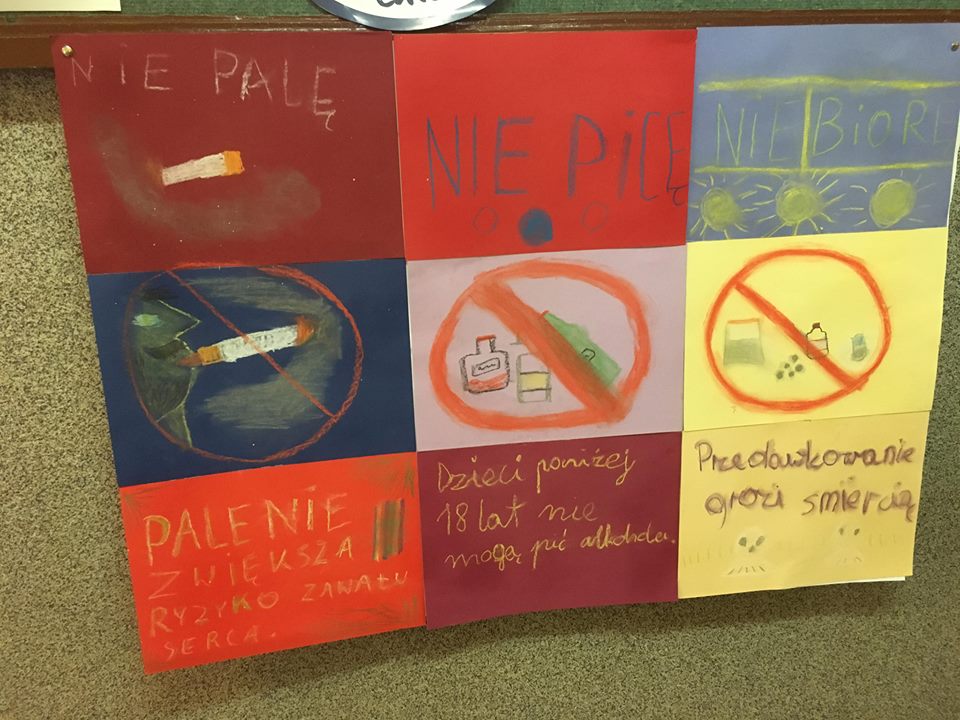 NIE PALĘ
NIE PiCĘ
NIE BiORĘ
PALENIE
ZWIĘKSZA
RYZYKO ZAWAŁU
SERCA.
Dzieci poniżej
18 lat nie
mogą pić alkoholu.
Przedawkowanie
grozi śmiercią